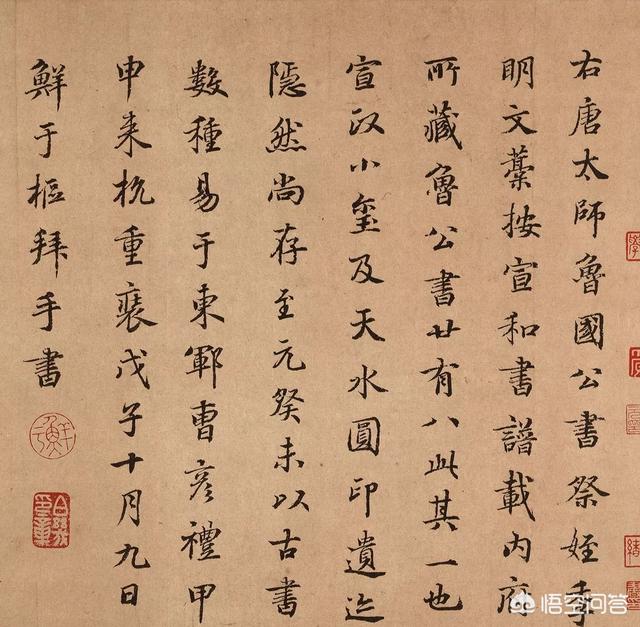 右唐太師魯國公書祭姪季
明文藁按宣和書譜載内府
所藏魯公書廿有八此其一也
宣政小璽及天水圓印遺迹
隱然尚存至元癸未以古書
數種易于東鄆曹彦禮甲
申来杭重裝戊子十月九日
鮮于樞拜手書
悟空问答